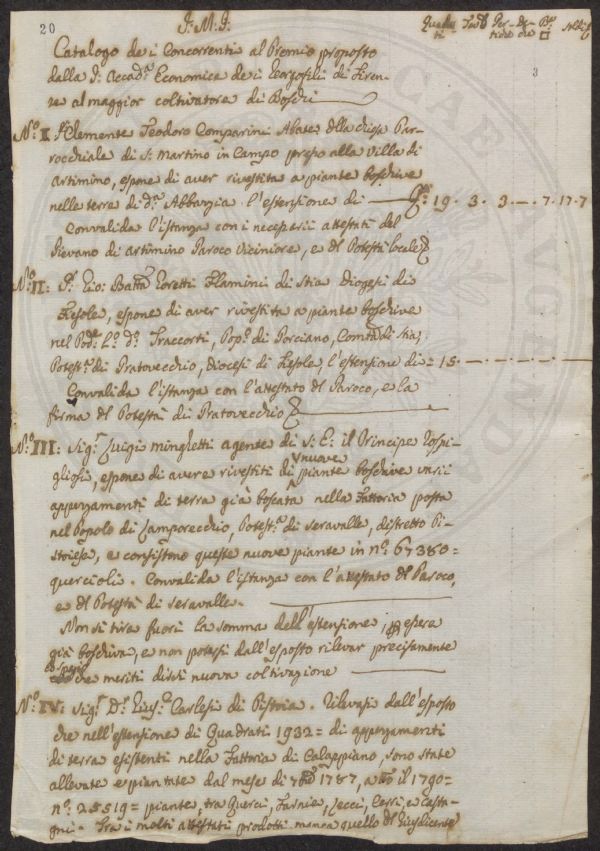 20
J. M. J.
Quadrati Tav.e Per-tiche De-che B.a □
3
Catalogo dei Concorrenti al Premio proposto
dalla d.a Accad.a Economica dei Georgofili di Firen-
ze al maggior coltivatore di Boschi
N.o I. P. Clemente Teodoro Comparini Abate della chiesa Par-
rocchiale di S. Martino in Campo presso alla Villa di
Artimino, espone di aver rivestita a piante boschive
nelle terre di d.a Abbazia l'estensione di — Q.ti 19. 3. 3. — . 7. 17. 7
Convalida l'istanza con i necessarii attestati del
Pievano di Artimino Paroco Viciniore, e del Potestà locale
N.o II: P. Gio: Batta Goretti Flamini di Stia Diogesi di
Fiesole, espone di aver rivestita a piante boschive
nel Pod.e L.o D.o Traccorti, Pop.o di Porciano, Com.tà di Stia,
Potest.a di Pratovecchio, Diocesi di Fiesole, l'estensione di = 15 —
Convalida l'istanza con l'attestato del Paroco, e la
firma del Potestà di Pratovecchio
N.o III: Sig.r Luigi Minghetti agente di S: E: il Principe Rospi-
gliosi, espone di avere rivestiti di nuove piante boschive varii
appezzamenti di terra già boscata nella Fattoria posta
nel Popolo di Lamporecchio, Potest.a di Seravalle, distretto Pi-
stoiese, e consistono queste nuove piante in n.o 67380 =
quercioli. Convalida l'istanza con l'attestato del Paroco,
e del Potestà di Seravalle.
Non si tira fuori la somma dell'estensione, essere
già boschiva, e non potersi dall'esposto rilevar precisamente
che meriti dirsi nuova coltivazione
N.o IV: Sig.r D.r Gius.e Carlesi di Pistoia. Rilevasi dall'esposto
che nell'estensione di Quadrati 1932 = di appezzamenti
di terra esistenti nella Fattoria di Calappiano, sono state
allevate e piantate dal mese di 7bre 1787, a tto il 1790 =
n.o 25519 = piante, tra Querci, Farnie, Lecci, Cerri, e Casta-
gni. Tra i molti attestati prodotti manca quello del Giusdicente